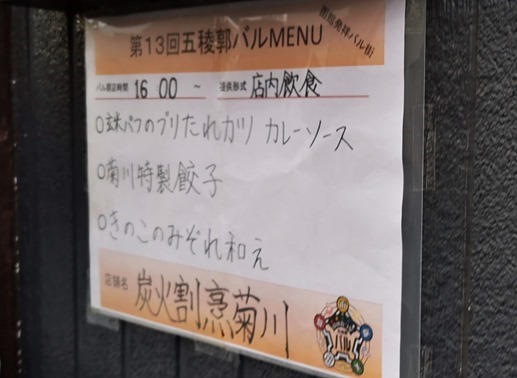 函館発祥バル街
第13回五稜郭バルMENU
バル開店時間 16 00 ~ 提供形式 店内飲食
○玄米パフのブリたれカツ カレーソース
○菊川特製餃子
○きのこのみぞれ和え
店舗名 炭火割烹菊川
バル